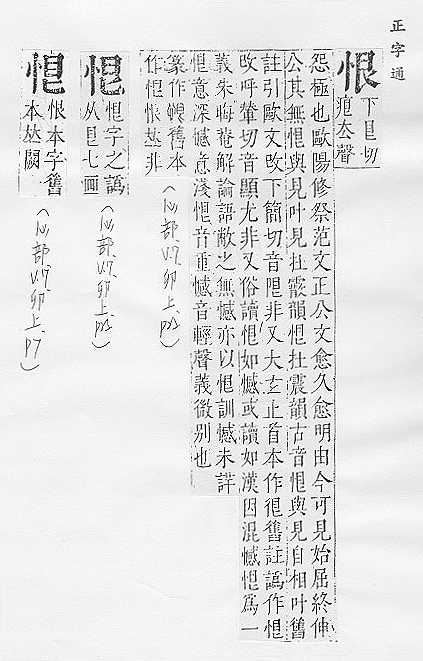 正字通
恨
下艮切
痕去聲
怨極也歐陽修祭范文正公文愈久愈明由今可見始屈終伸
公其無恨與見叶見在霰韻恨在震韻古音恨與見自相叶舊
註引歐文改下簡切音限非又大玄止首本作很舊註譌作恨
改呼輦切音顯尤非又俗讀恨如憾或讀如漢因混憾恨為一
義朱晦菴解論語敝之無憾亦以恨訓憾未詳
恨意深憾意淺恨音重憾音輕聲義微別也
篆作舊本
作恨𠀤非
(心部.V.7.卯上.p2)
恨字之譌
从艮七畫
(心部.V.7.卯上.p2)
恨本字舊
本𠀤闕
(心部.V.7.卯上.p7)